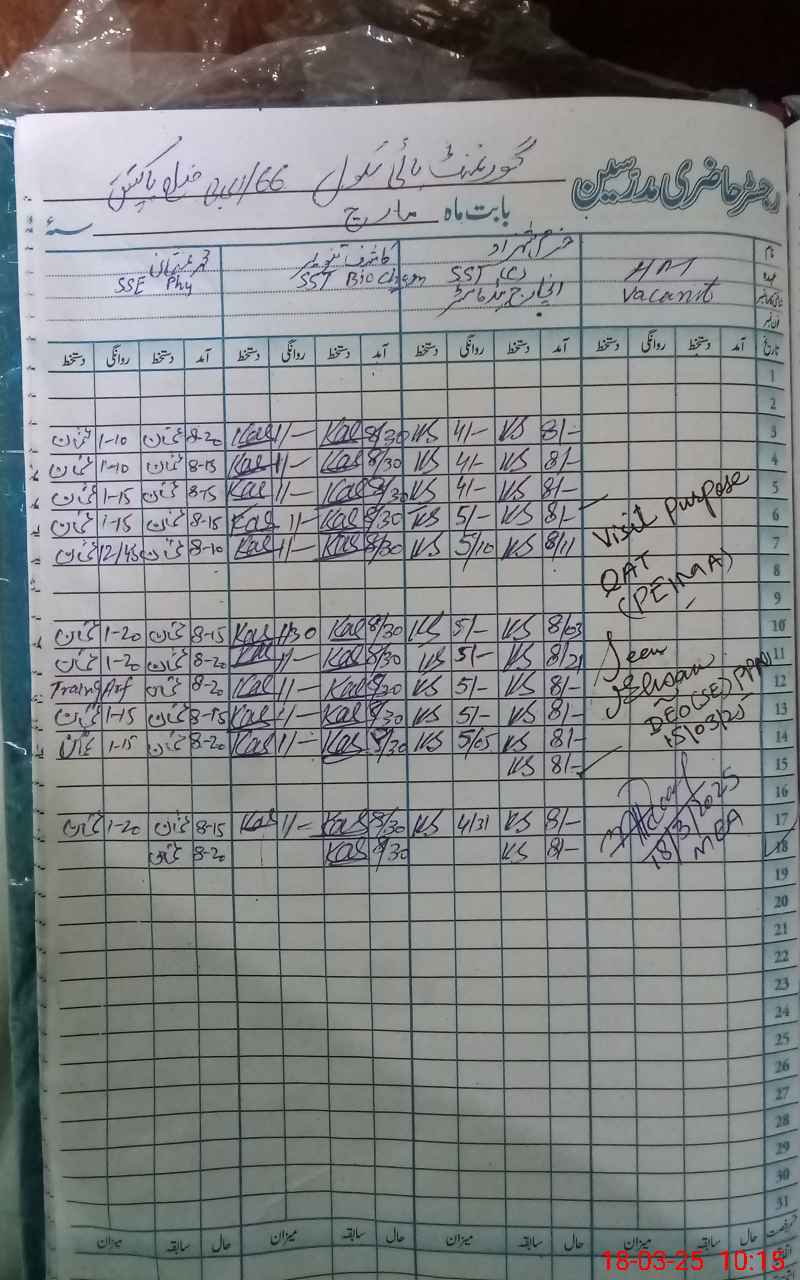 رجسٹر حاضری مدرسین
گورنمنٹ ہائی سکول 66/ ضلع پاکپتن
بابت ماہ مارچ سنہ
نام HM خرم شہزاد کاشف محمد عثمان
عہدہ Vacant SST (C) SST Bio Chem SSE Phy
انچارج ہیڈ ماسٹر
تاریخ آمد دستخط روانگی دستخط آمد دستخط روانگی دستخط آمد دستخط روانگی دستخط آمد دستخط روانگی دستخط
1
2
3 8/- KS 4/- KS 8/30 Kas 1/- Kas 8-20 عثمان 1-10 عثمان
4 8/- KS 4/- KS 8/30 Kas 1/- Kas 8-15 عثمان 1-10 عثمان
5 8/- KS 4/- KS 8/30 Kas 1/- Kas 8-15 عثمان 1-15 عثمان
6 8/- KS 5/- KS 8/30 Kas 1/- Kas 8-15 عثمان 1-15 عثمان
7 8/11 KS 5/10 KS 8/30 Kas 1/- Kas 8-10 عثمان 12/45 عثمان
8
9
10 8/03 KS 5/- KS 8/30 Kas 1/30 Kas 8-15 عثمان 1-20 عثمان
11 8/21 KS 5/- KS 8/30 Kas 1/- Kas 8-20 عثمان 1-20 عثمان
12 8/- KS 5/- KS 8/30 Kas 1/- Kas 8-20 عثمان
13 8/- KS 5/- KS 8/30 Kas 1/- Kas 8-15 عثمان 1-15 عثمان
14 8/- KS 5/05 KS 8/30 Kas 1/- Kas 8-20 عثمان 1-15 عثمان
15 8/- KS
16
17 8/- KS 4/31 KS 8/30 Kas 1/- Kas 8-15 عثمان 1-20 عثمان
18 8/- KS 8/30 Kas 8-20 عثمان
19
20
21
22
23
24
25
26
27
28
29
30
31
Visit Purpose
QAT
(PEIMA)
Seen
Ehsan
DEO(SE) PPN
15/03/25
18/3/2025
MEA
حال سابقہ میزان حال سابقہ میزان حال سابقہ میزان حال سابقہ میزان
18-03-25 10:15